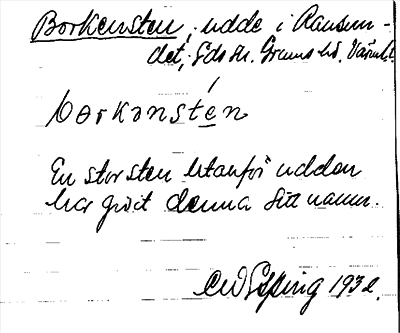 Borkensten, udde i Aasun-
det, Eds sn. Grums hd. Värml.
borkənstén
En stor sten utanför udden
har givit denna sitt namn.
Elping 1932.